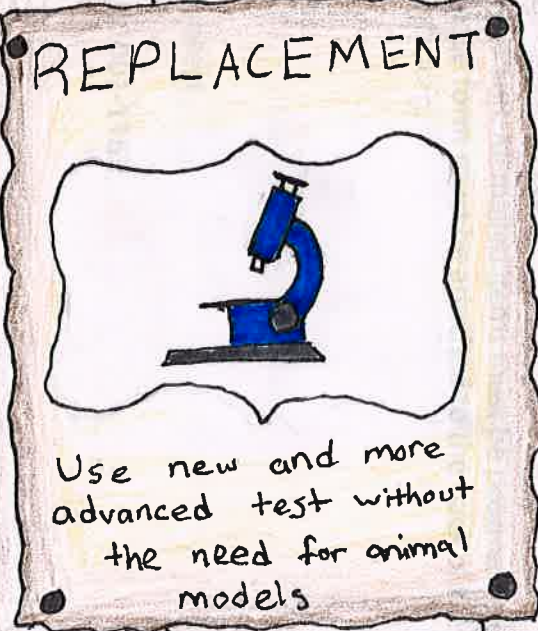 REPLACEMENT
Use new and more
advanced test without
the need for animal
models